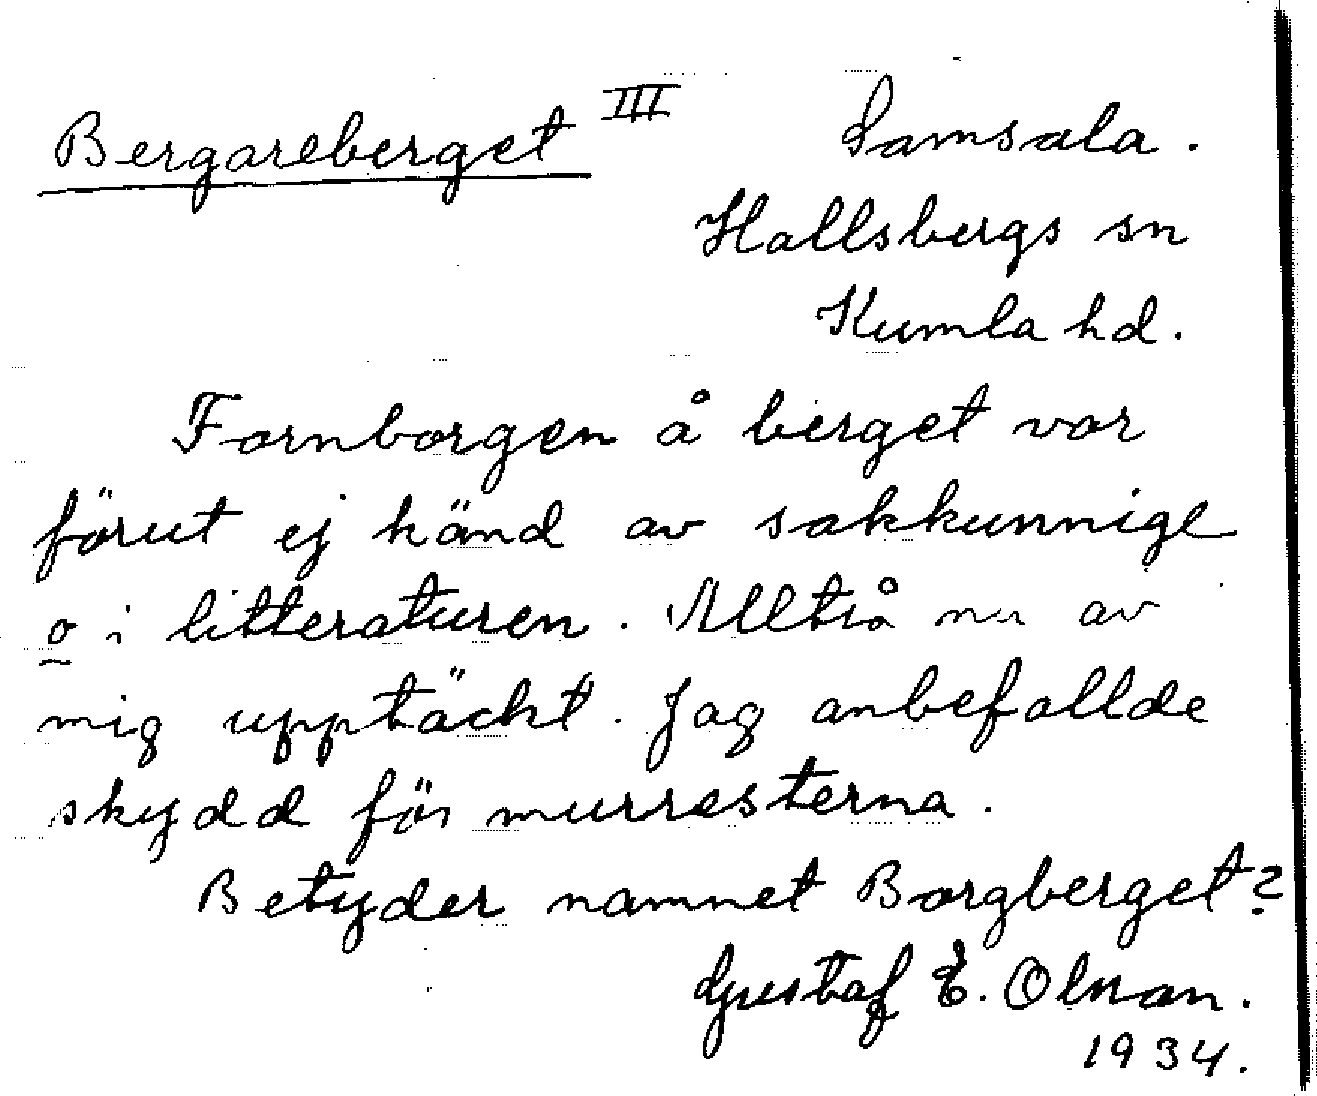 Bergareberget III Samsala.
Hallsbergs sn
Kumla hd.
Fornborgen å berget var
förut ej känd av sakkunnige
o i litteraturen. Alltså nu av
mig upptäckt. Jag anbefallde
skydd för murresterna.
Betyder namnet Borgberget?
Gustaf E. Olsson.
1934.